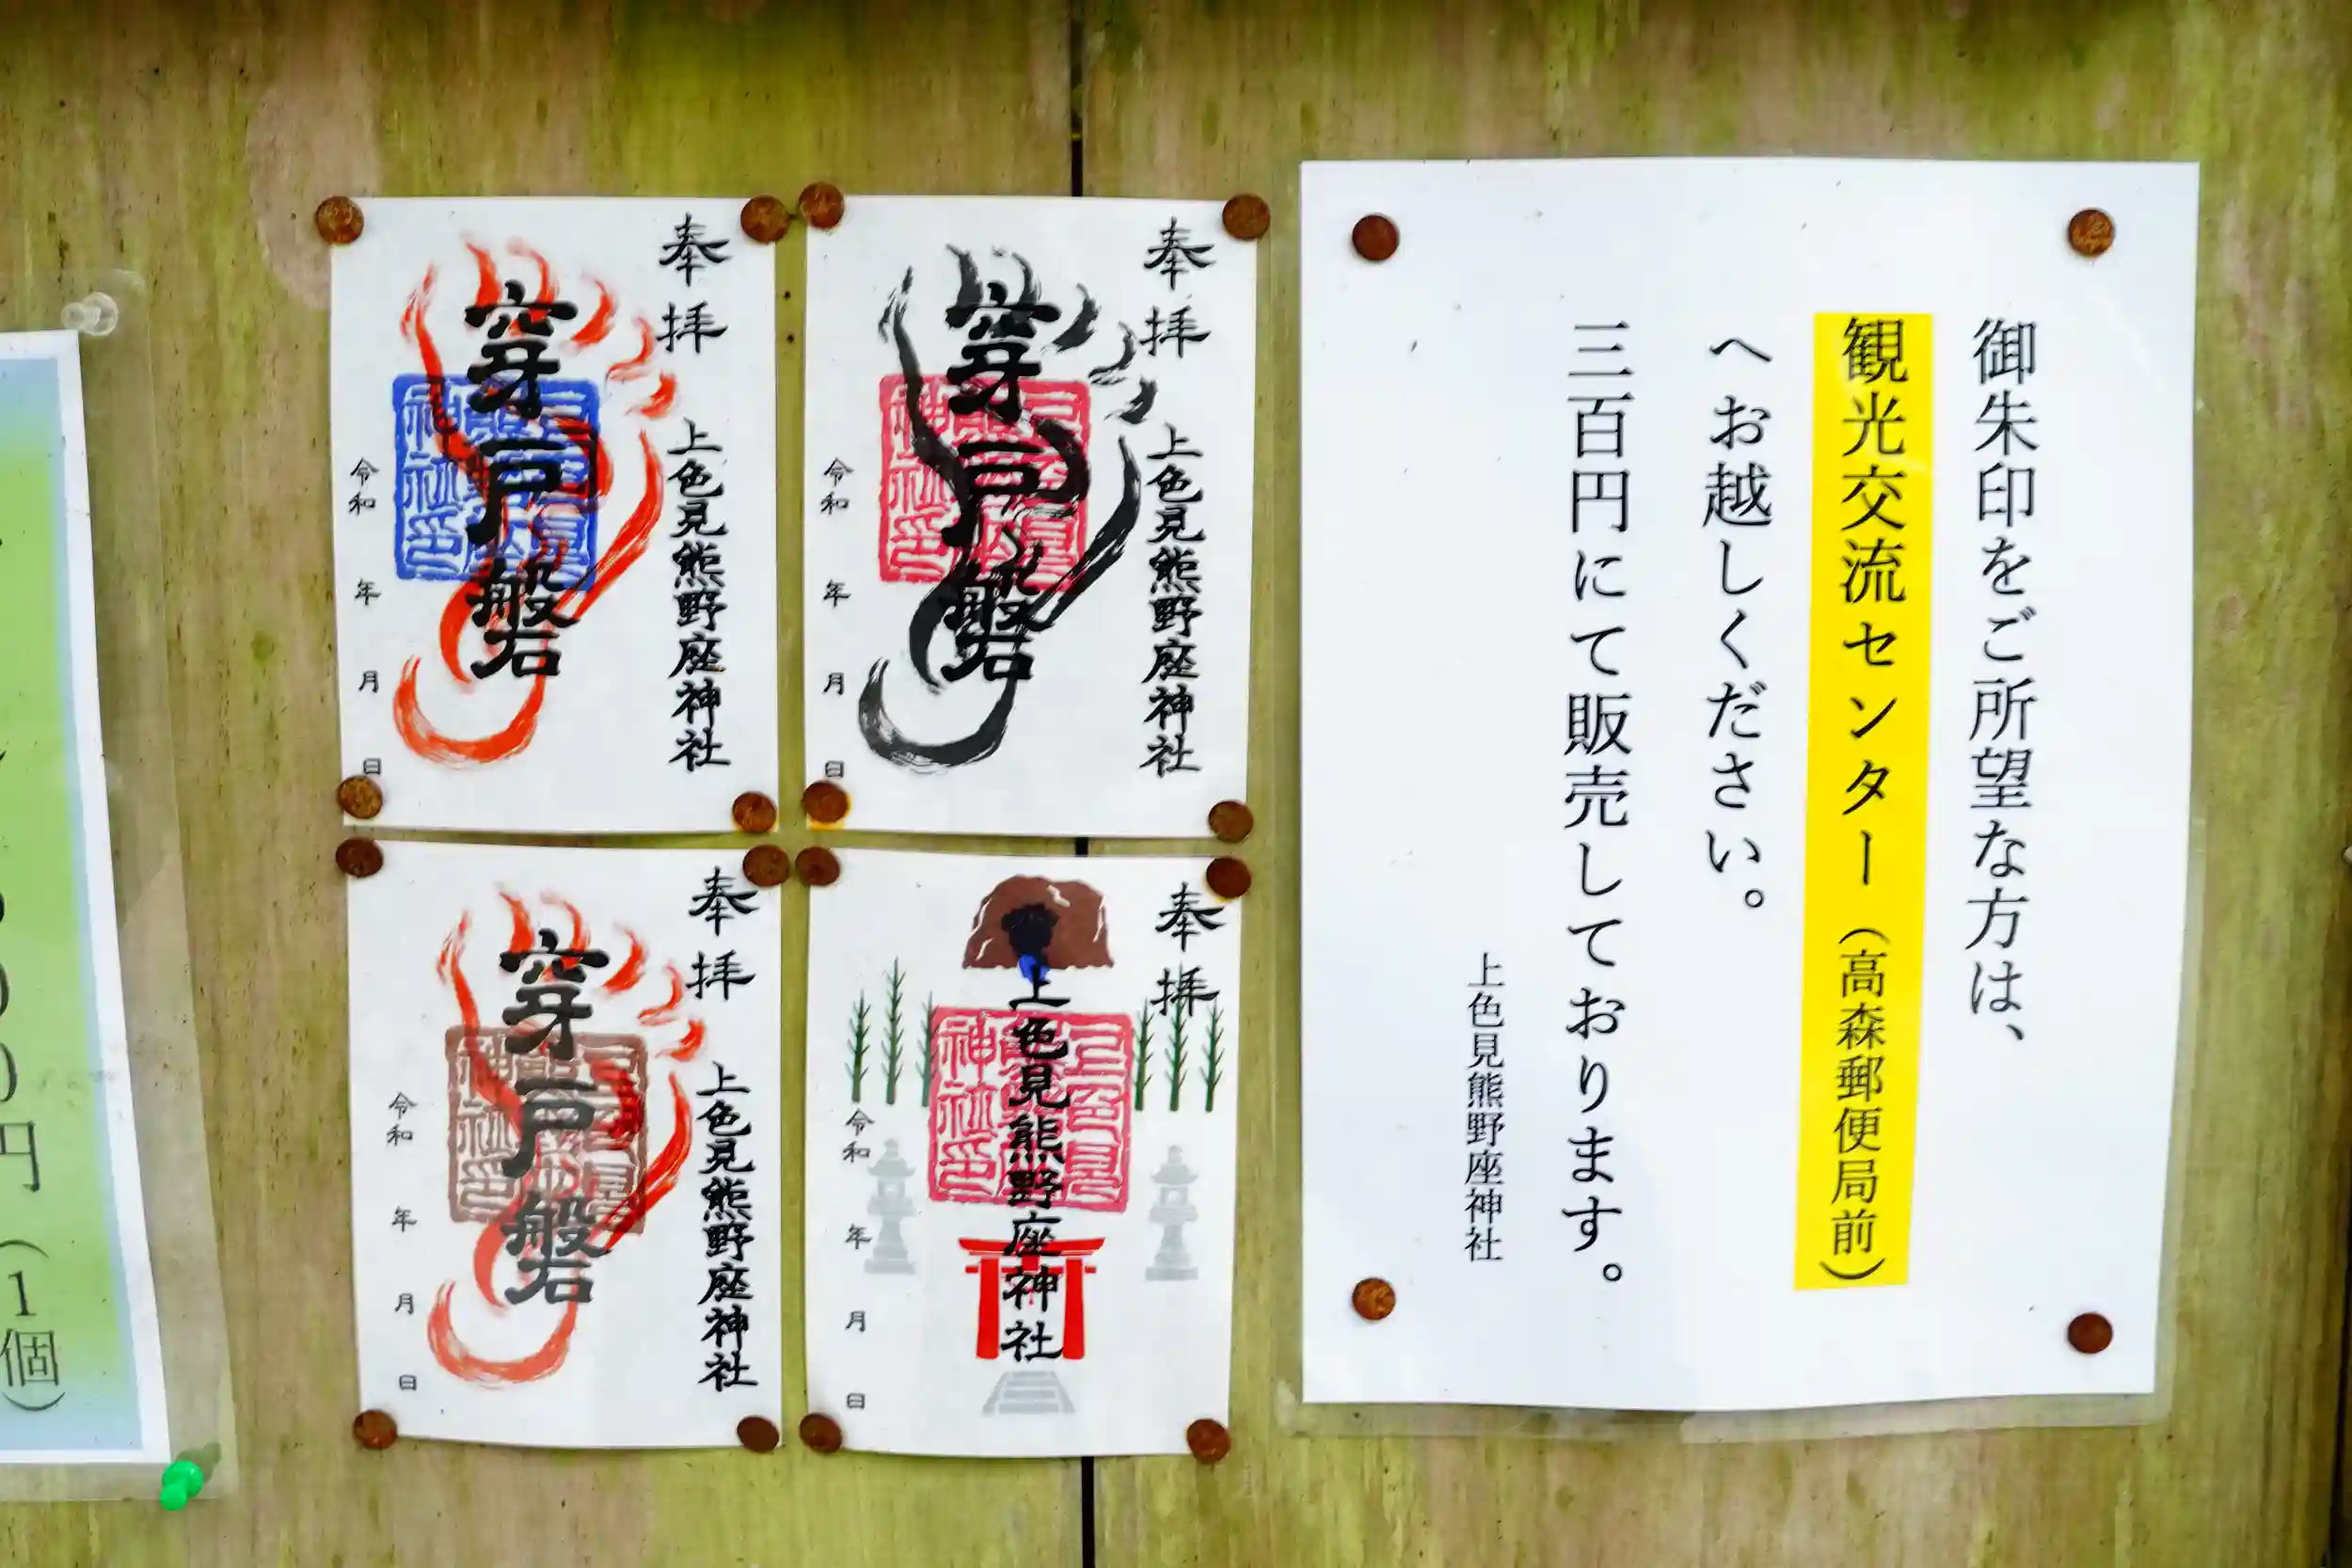 御朱印をご所望な方は、
観光交流センター（高森郵便局前）
へお越しください。
三百円にて販売しております。
上色見熊野座神社
奉拝
上色見熊野座神社
穿戸磐
令和 年 月 日
奉拝
上色見熊野座神社
穿戸磐
令和 年 月 日
奉拝
上色見熊野座神社
穿戸磐
令和 年 月 日
奉拝
上色見熊野座神社
令和 年 月 日
00円（1個）